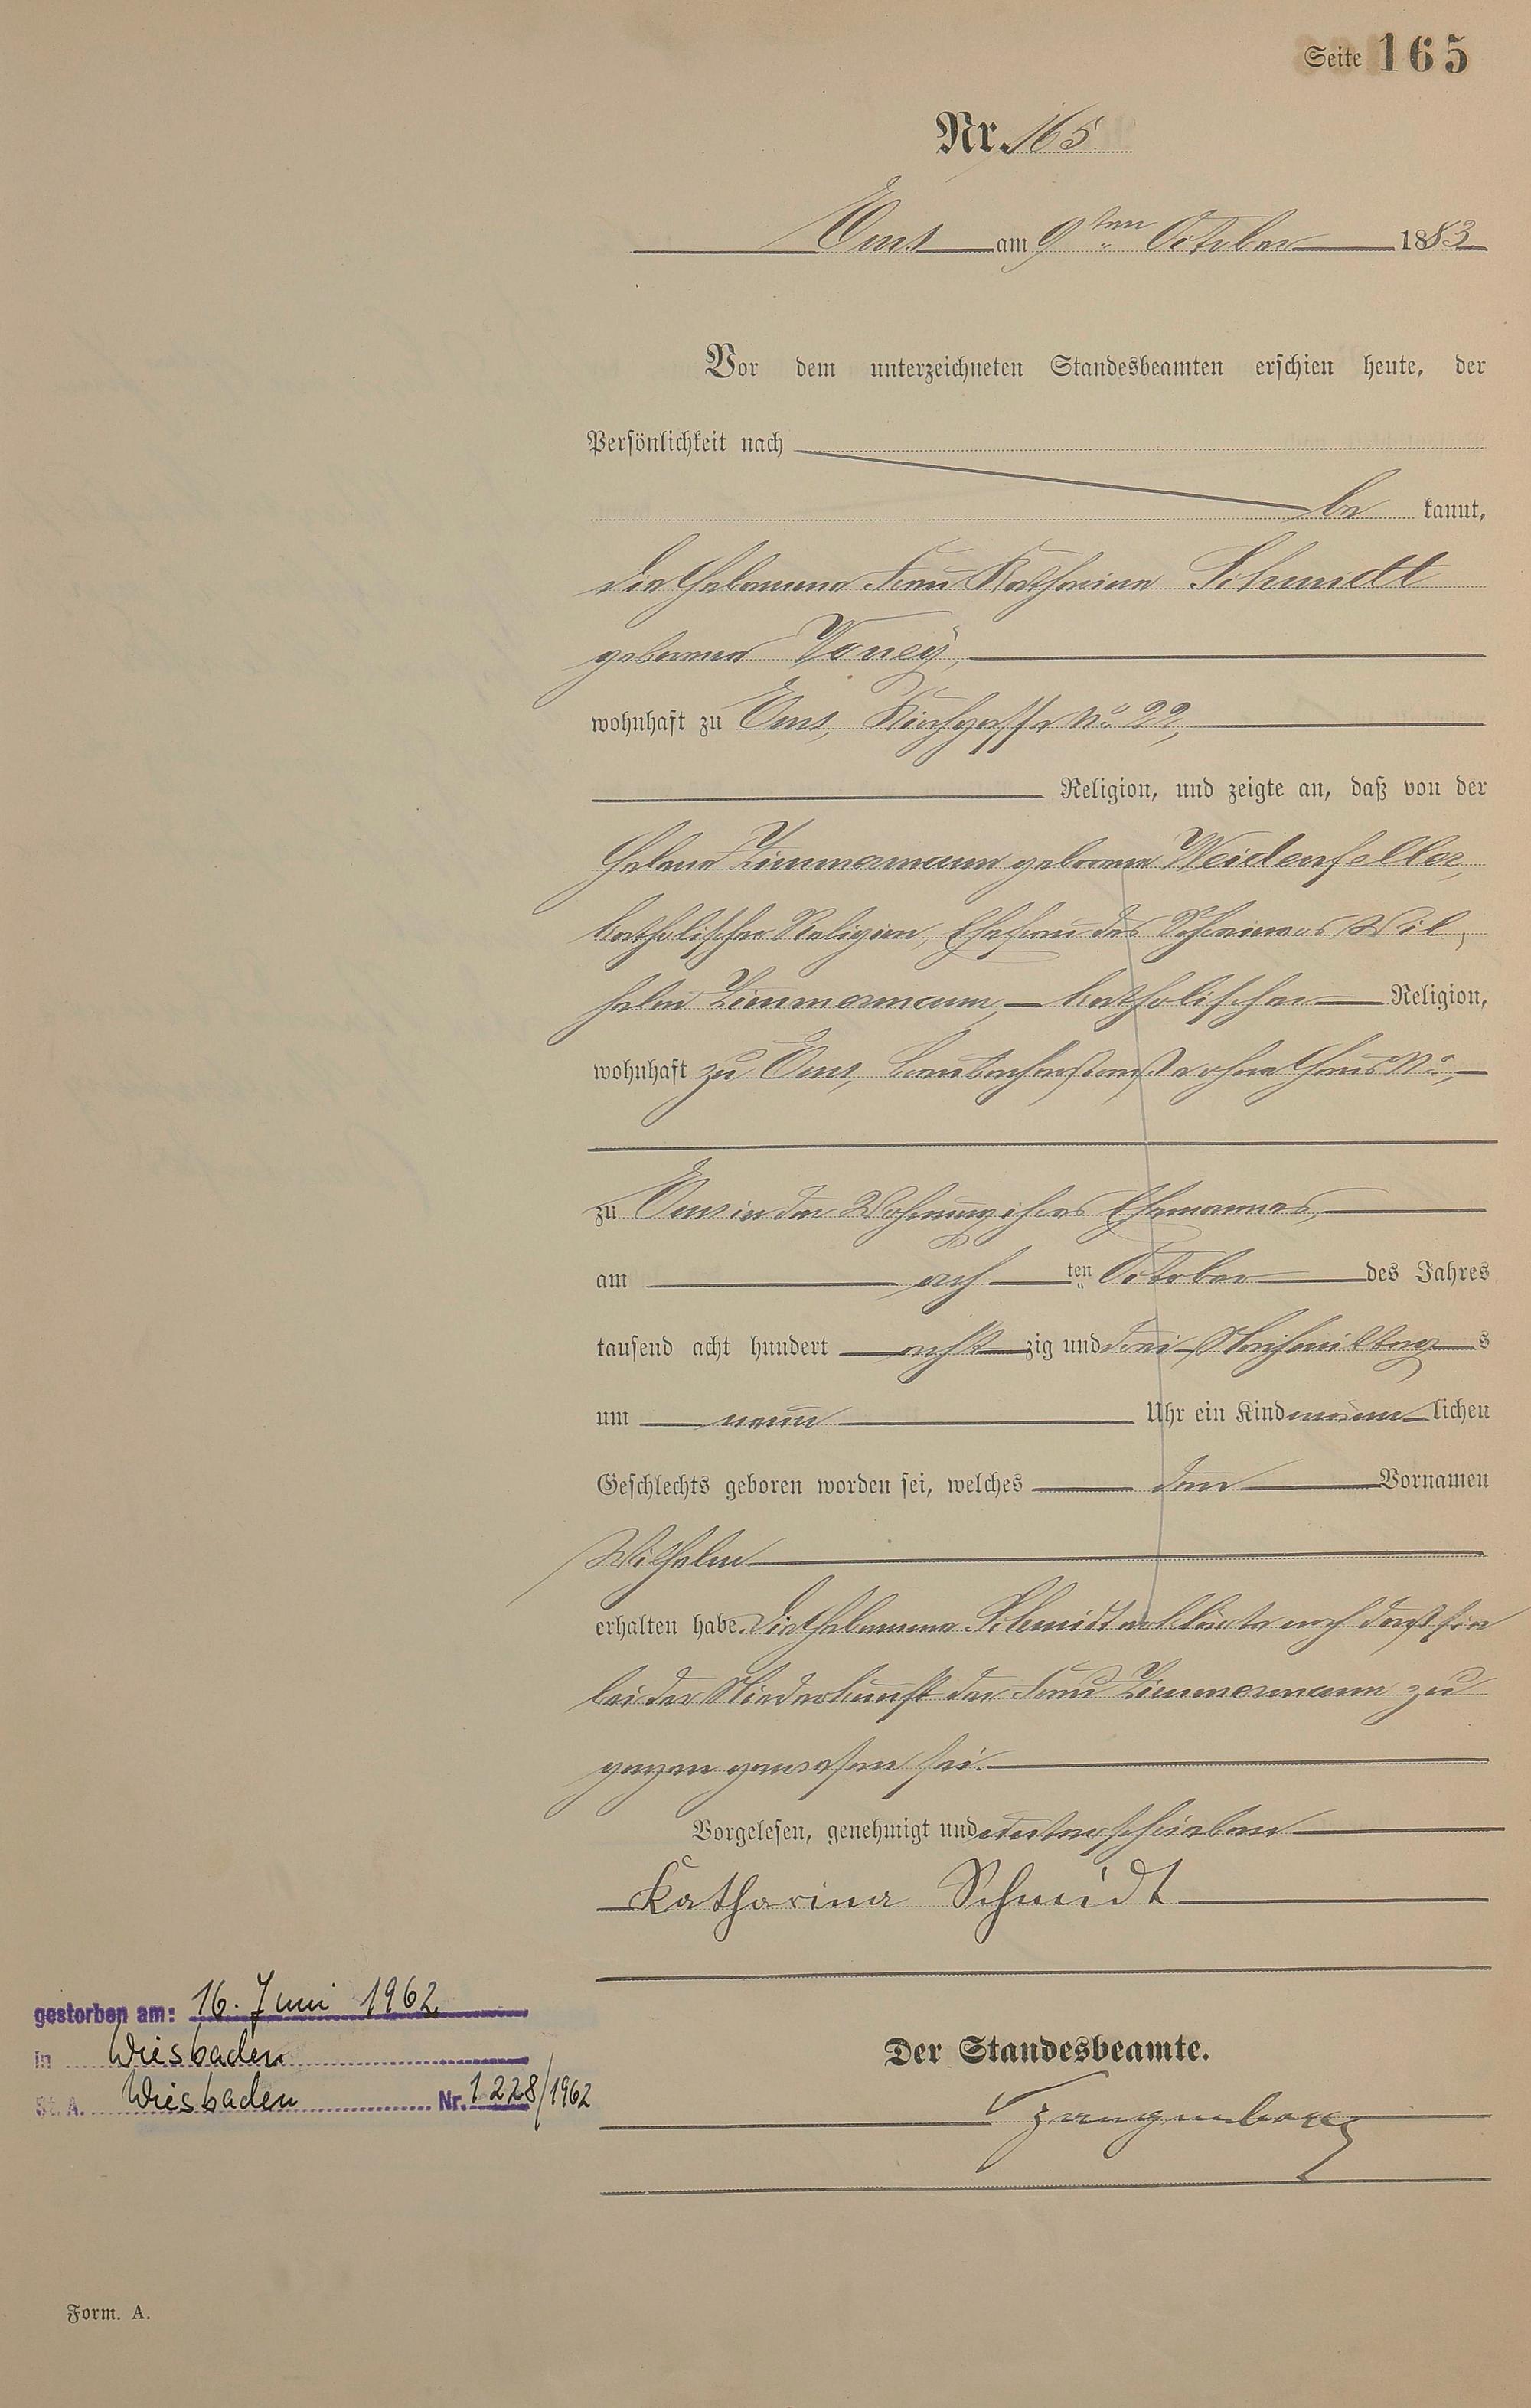 Seite 165
Nr. 165
Ems am 9ten October 1883
Vor dem unterzeichneten Standesbeamten erschien heute, der
Persönlichkeit nach
be kannt,
die Hebamme Frau Katharina Schmidt
geborene
wohnhaft zu Ems, Kirchgasse No. 22,
Religion, und zeigte an, daß von der
Helene Zimmermann geborene Weidenfeller,
katholischer Religion, Ehefrau des Schreiners Wil,
helm Zimmermann, katholischer Religion,
wohnhaft zu Ems, ohne Haus No.,
zu Ems in der Wohnung ihres Ehemannes,
am ach ten October des Jahres
tausend acht hundert acht zig und drei Nachmittag s
um neun Uhr ein Kind männ lichen
Geschlechts geboren worden sei, welches den Vornamen
Wilhelm
erhalten habe. Die Hebamme Schmidt erklärte noch daß sie
bei der Niederkunft der Frau Zimmermann zu
gegen gewesen sei.
Vorgelesen, genehmigt und unterschrieben
Katharina Schmidt
Der Standesbeamte.
gestorben am: 16. Juni 1962
in Wiesbaden
St. A. Wiesbaden Nr. 1228/1962
Form. A.